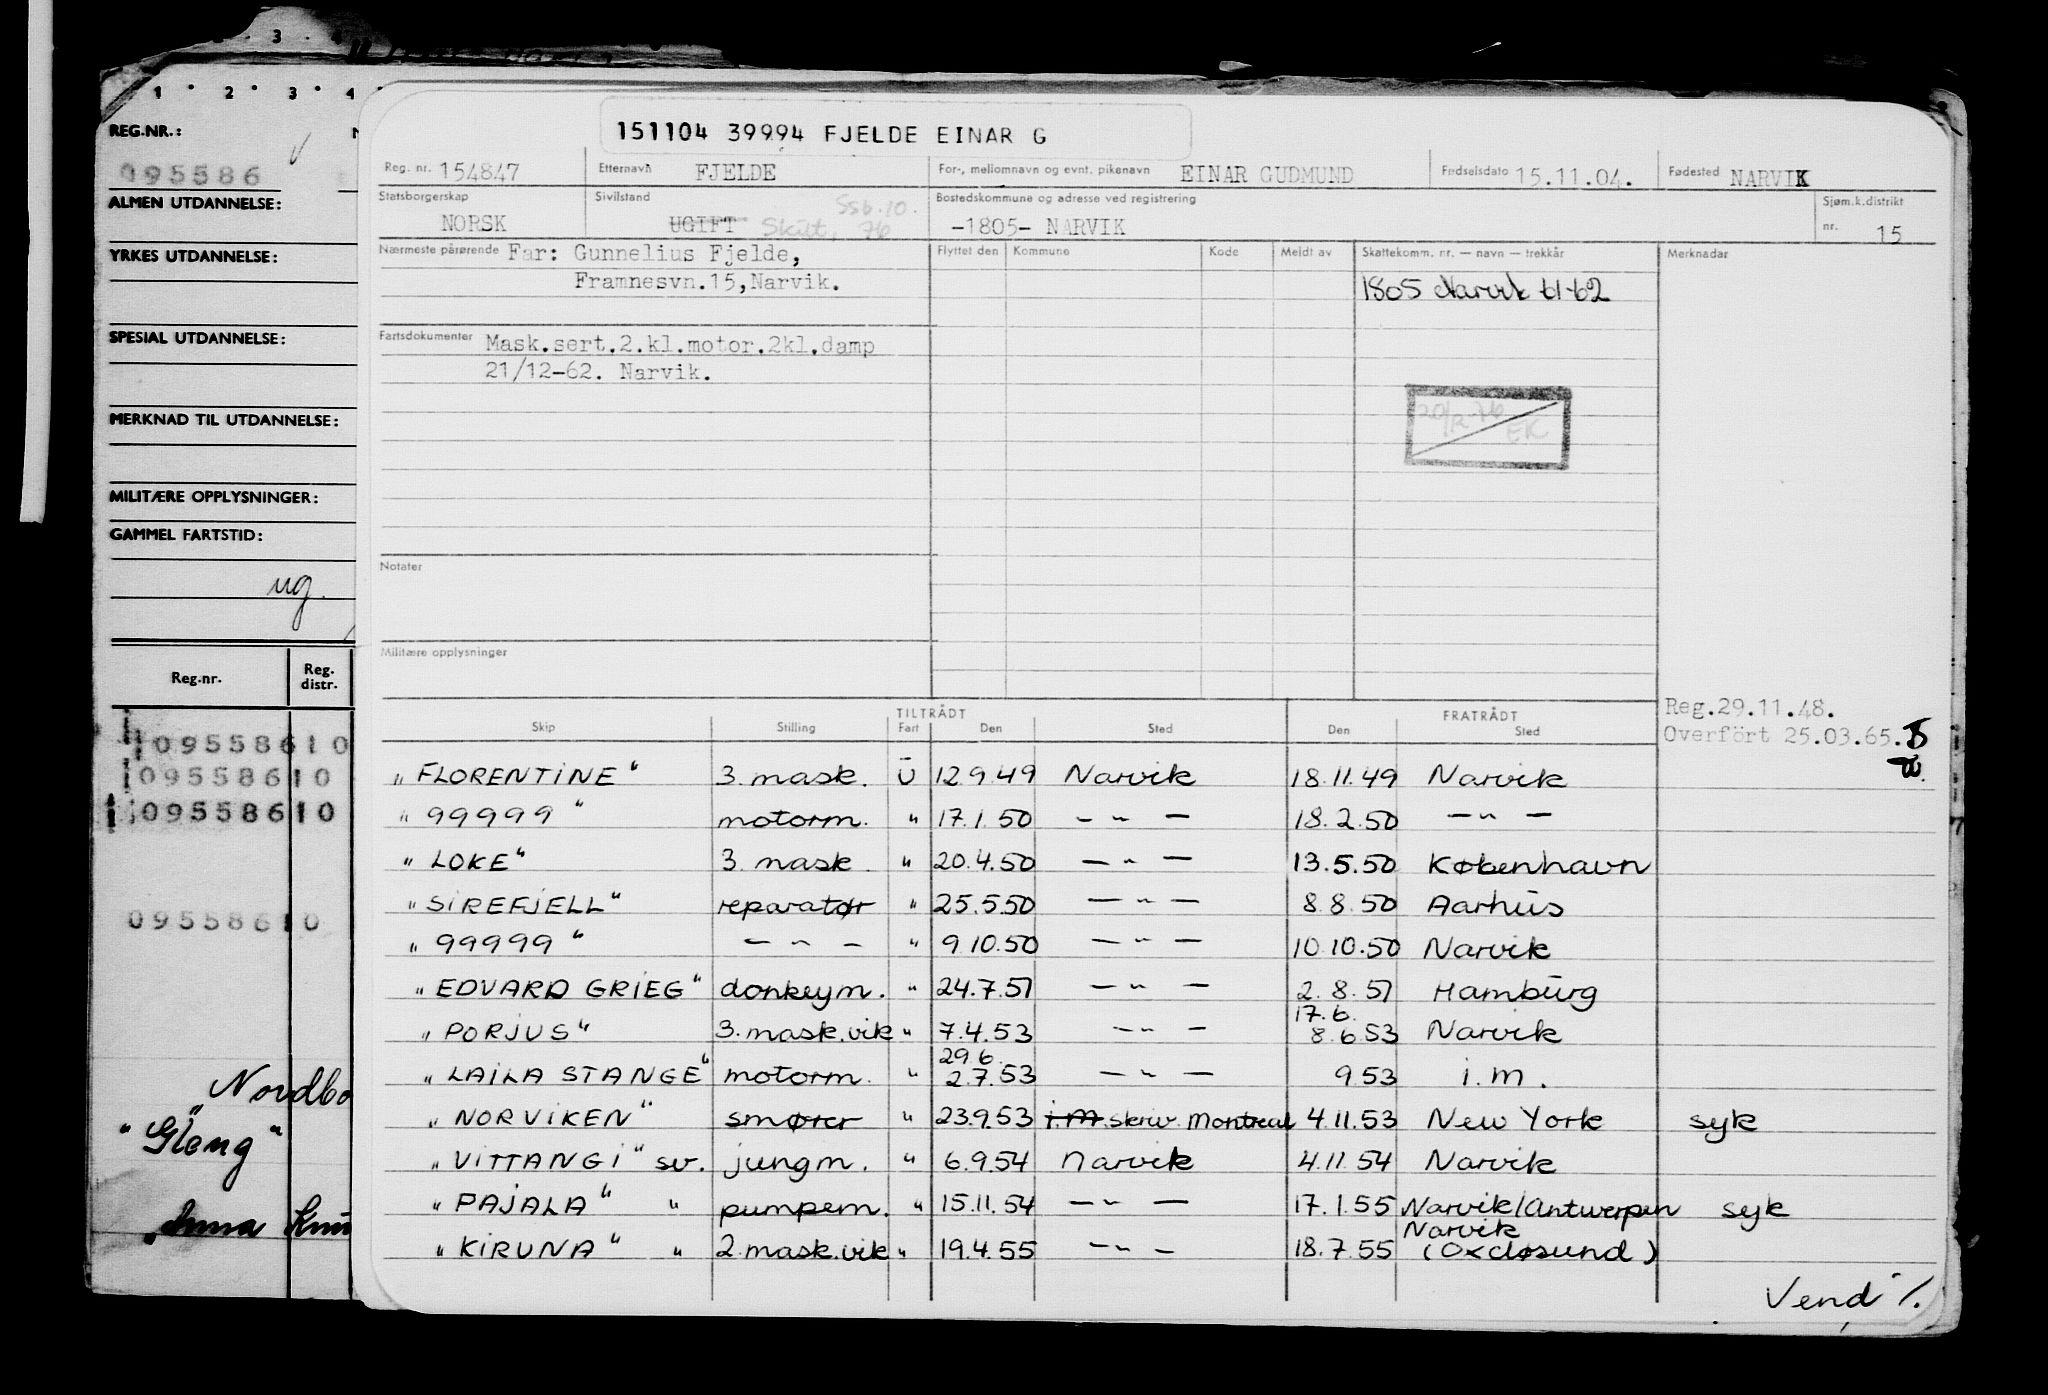 1 2 3 4
REG.NR.:
095586
ALMEN UTDANNELSE:
YRKES UTDANNELSE:
SPESIAL UTDANNELSE:
MERKNAD TIL UTDANNELSE:
MILITÆRE OPPLYSNINGER:
GAMMEL FARTSTID:
ug.
Reg.nr. Reg. distr.
09558610
09558610
09558610
09558610
Nordbo
"Gleng"
Anna Knu
151104 39994 FJELDE EINAR G
Reg. nr. 154847 Etternavn FJELDE For-, mellomnavn og evnt. pikenavn EINAR GUDMUND Fødselsdato 15.11.04. Fødested NARVIK
Statsborgerskap Sivilstand Ssb.10. Bostedskommune og adresse ved registrering Sjøm.k.distrikt
NORSK UGIFT Skilt, 76 -1805- NARVIK nr. 15
Nærmeste pårørende Far: Gunnelius Fjelde, Flyttet den Kommune Kode Meldt av Skattekomm. nr. — navn — trekkår Merknader
Framnesvn.15,Narvik. 1805 Narvik 61-62
Fartsdokumenter Mask.sert.2.kl.motor.2kl.damp
21/12-62. Narvik.
20/12-76
EK
Notater
Militære opplysninger
Reg.29.11.48.
Overført 25.03.65.
TILTRÅDT FRATRÅDT
Skip Stilling Fart Den Sted Den Sted
"FLORENTINE" 3. mask. U 12.9.49 Narvik 18.11.49 Narvik
"99999" motorm. " 17.1.50 — " — 18.2.50 — " —
"LOKE" 3. mask. " 20.4.50 — " — 13.5.50 København
"SIREFJELL" reparatør " 25.5.50 — " — 8.8.50 Aarhus
"99999" — " — " 9.10.50 — " — 10.10.50 Narvik
"EDVARD GRIEG" donkeym. " 24.7.51 — " — 2.8.51 Hamburg
17.6.
"PORJUS" 3. mask.vik " 7.4.53 — " — 8.6.53 Narvik
29.6.
"LAILA STANGE" motorm. " 2.7.53 — " — 9.53 i.m.
"NORVIKEN" smører " 23.9.53 i.m. skriv Montreal 4.11.53 New York syk
"VITTANGI" sv. jungm. " 6.9.54 Narvik 4.11.54 Narvik
"PAJALA" " pumpem. " 15.11.54 — " — 17.1.55 Narvik/Antwerpen syk
Narvik
"KIRUNA" " 2. mask.vik " 19.4.55 — " — 18.7.55 (Oxeløsund)
Vend ./.